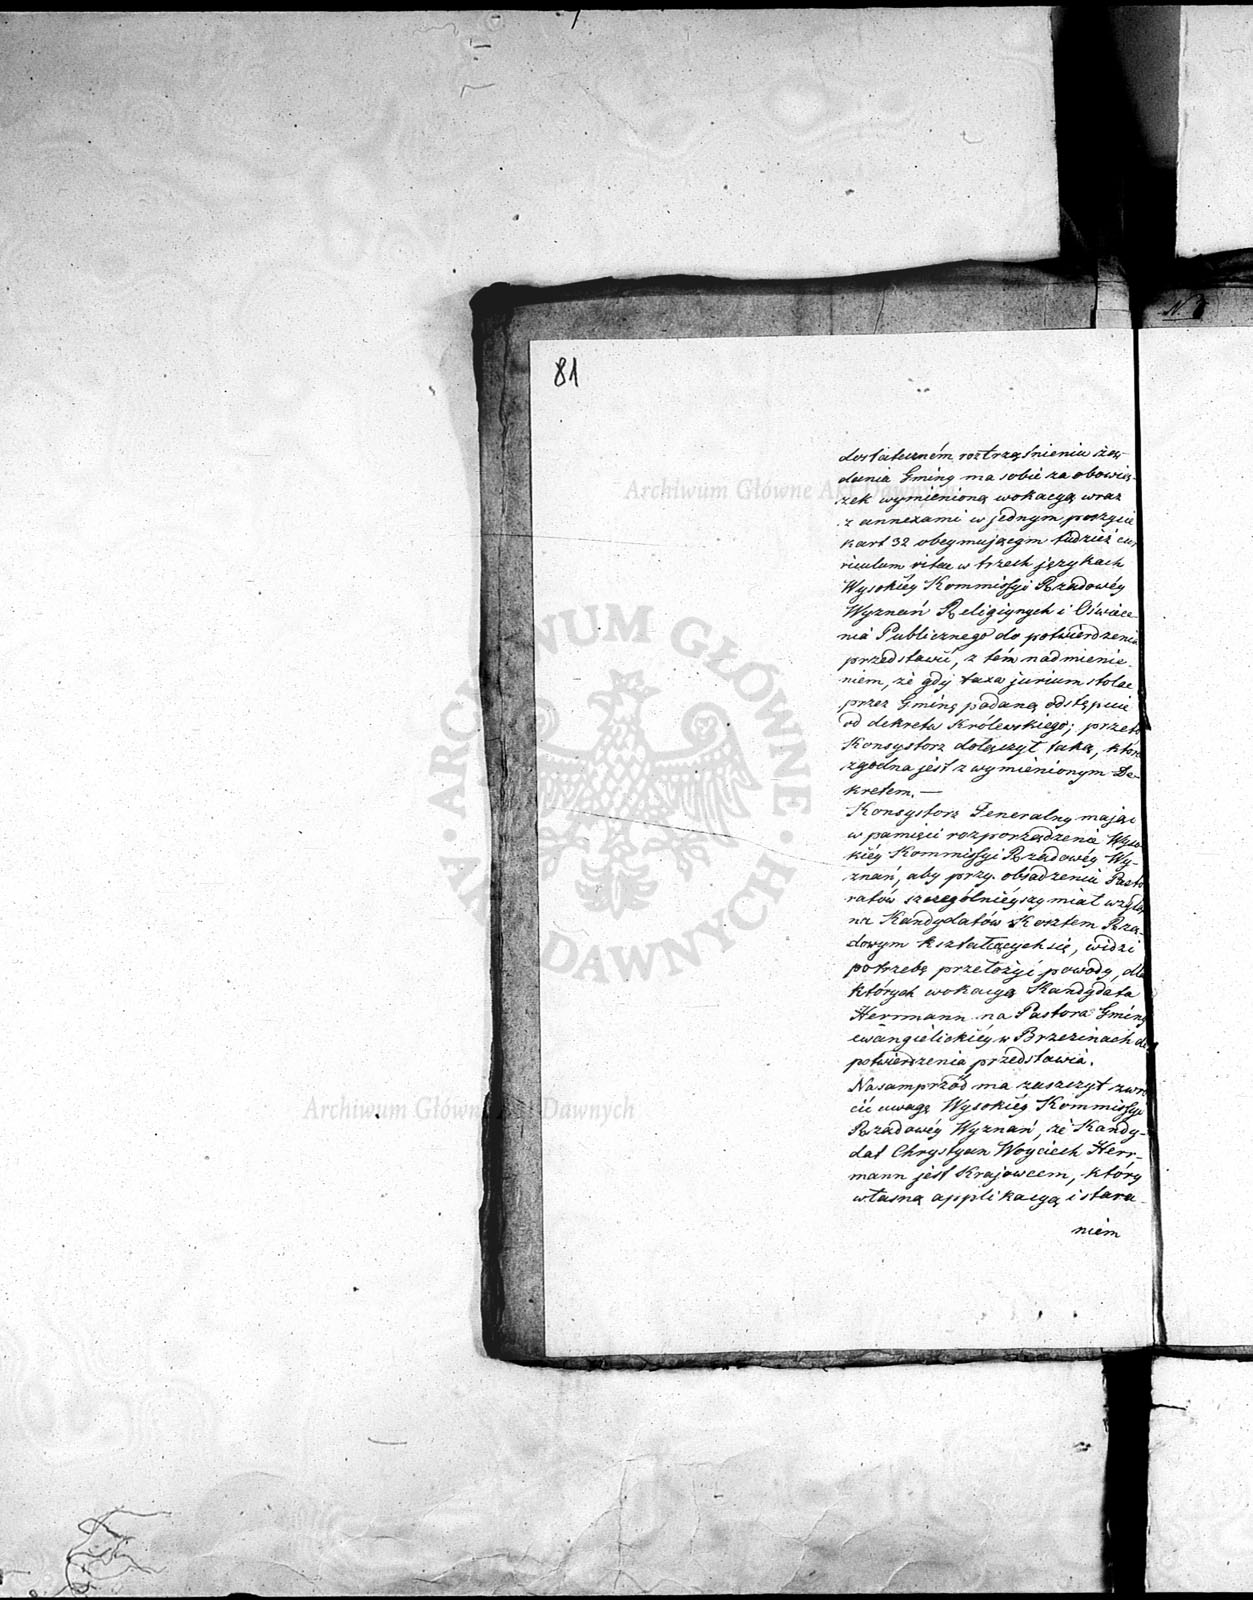 81
dostateczném roztrząśnieniu żą-
dania Gminy ma sobie za obowią-
zek wymienioną wokacyą wraz
z annexami w jednym poszycie
kart 32 obeymującym tudzież cur
riculum vitae w trzech językach
Wysokiéy Kommissyi Rządowéy
Wyznań Religiynych i Oświece-
nia Publicznego do potwierdzenia
przedstawić, z tém nadmienie-
niem, że gdy taxa jurium stolae
przez Gminę podana odstępuie
od dekretu Królewskiego; przeto
Konsystorz dołączył taką, która
zgodna jest z wymienionym De-
kretem. —
Konsystorz Jeneralny mając
w pamięci rozporządzenia Wyso-
kiéy Kommissyi Rządowéy Wy-
znań, aby przy obsadzeniu Pasto
ratów szczególniéyszy miał wzgląd
na Kandydatów Kosztem Rzą-
dowym kształcących się, widzi
potrzebę przełożyć powody, dla
których wokacyą Kandydata
Herrmann na Pastora Gminy
ewangielickiéy w Brzezinach do
potwierdzenia przedstawia.
Nasamprzód ma zaszczyt zwró
cić uwagę Wysokiéy Kommissyi
Rządowéy Wyznań, że Kandy-
dat Chrystyan Woyciech Herr-
mann jest Krajowcem, który
własną applikacyą i stara-
niem
N.
Archiwum Główne Akt Dawnych
ARCHIWUM GŁÓWNE
AKT DAWNYCH
Archiwum Główne Akt Dawnych